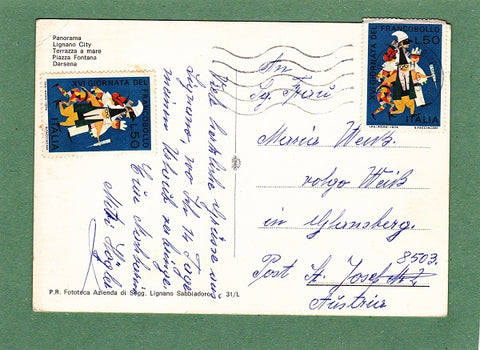 Panorama
Lignano City
Terrazza a mare
Piazza Fontana
Darsena
XVI GIORNATA DEL
FRANCOBOLLO
L.50
ITALIA
XVI GIORNATA DEL
FRANCOBOLLO
L.50
ITALIA
Viele herzliche Grüsse aus
Lignano, wo ich 14 Tage
meinen Urlaub verbringe.
Eure
Mitzi
An
Sg. Frau
Maria Weiß
vulgo Weiß
in
Post St. Josef
8503.
Austria
P.R. Fototeca Azienda di Sogg. Lignano Sabbiadoro
31/L